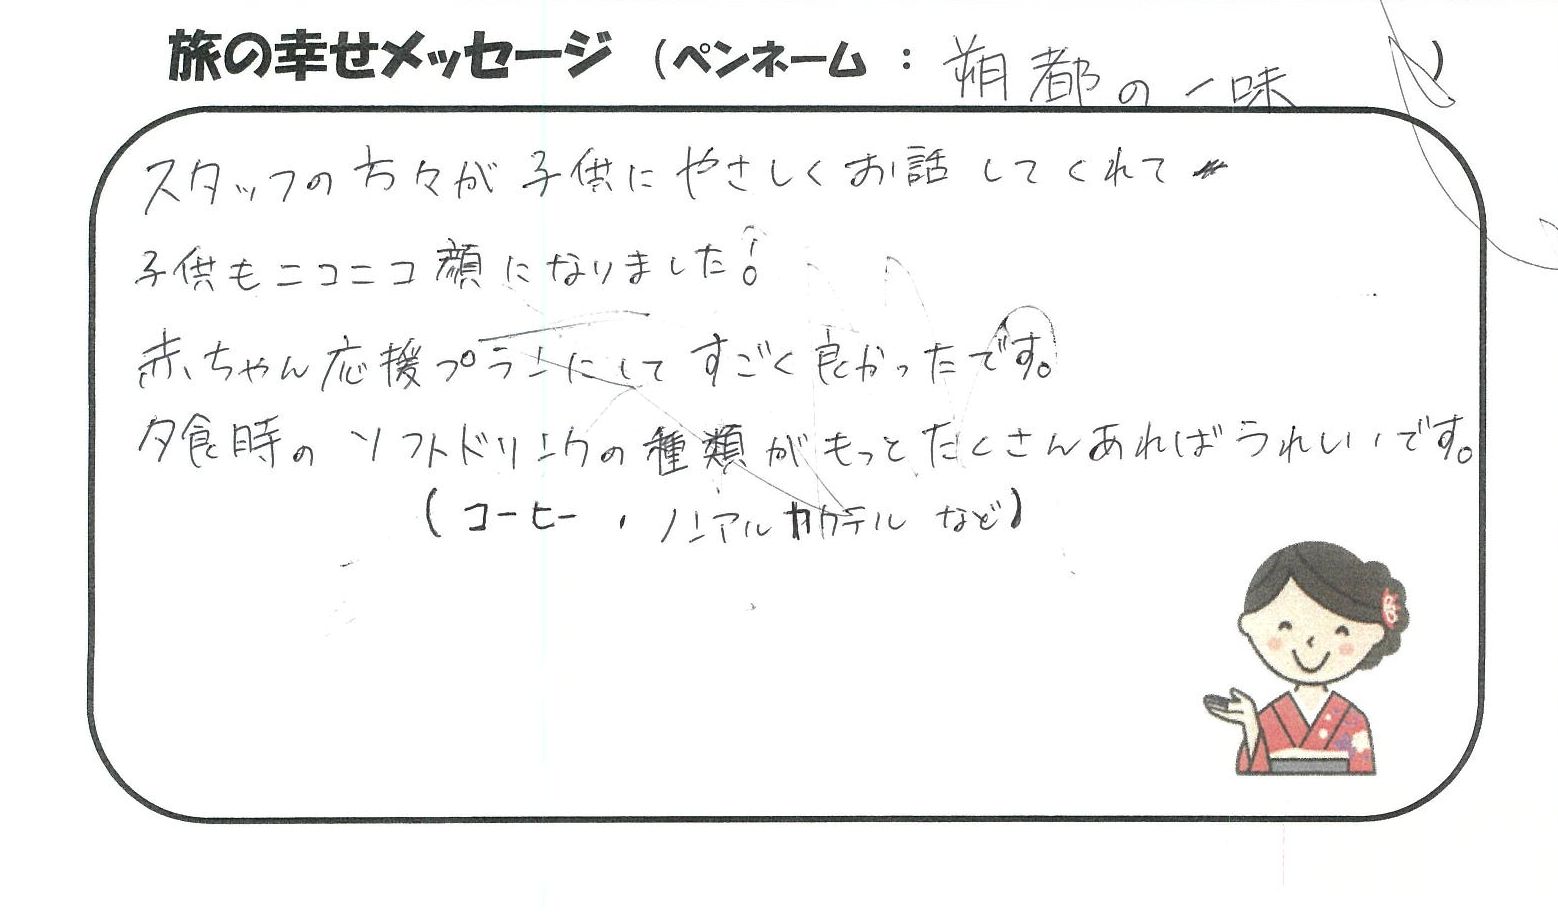 旅の幸せメッセージ（ペンネーム：朔都の一味）
スタッフの方々が子供にやさしくお話してくれて
子供もニコニコ顔になりました！
赤ちゃん応援プランにしてすごく良かったです。
夕食時のソフトドリンクの種類がもっとたくさんあればうれしいです。
（コーヒー・ノンアルカクテルなど）